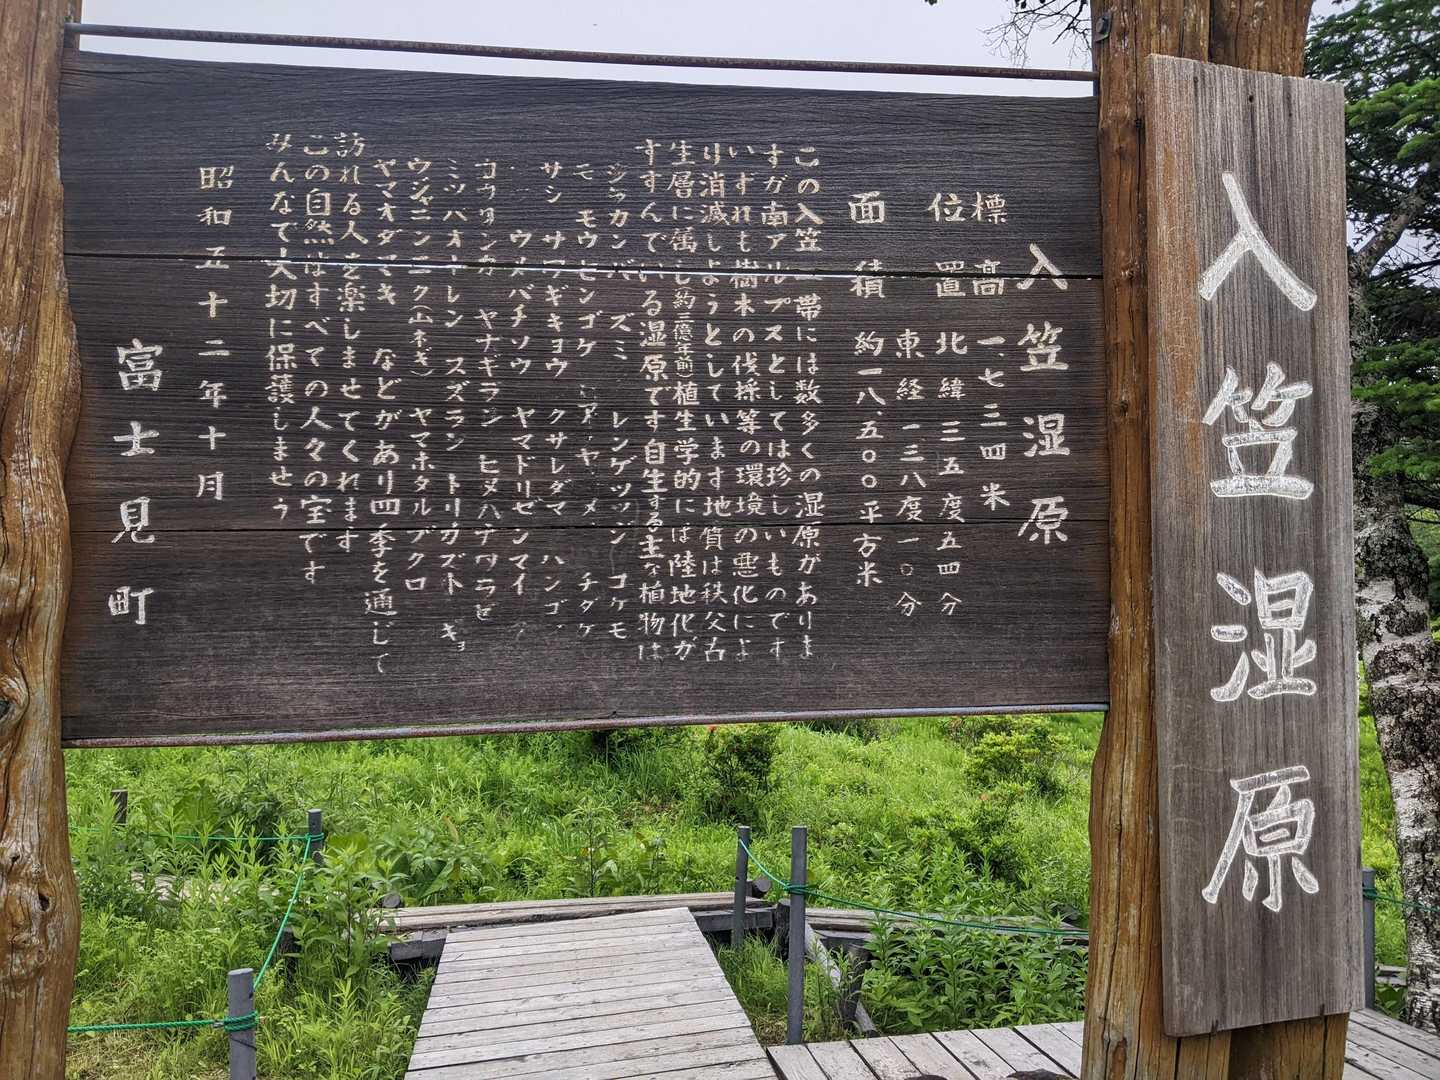 入笠湿原
入笠湿原
標高 一、七三四米
位置 北緯三五度五四分
東経一三八度一〇分
面積 約一八、五〇〇平方米
この入笠一帯には数多くの湿原がありま
すが南アルプスとしては珍しいものです
いずれも樹木の伐採等の環境の悪化によ
り消滅しようとしています地質は秩父古
生層に属し(約二億年前)植生学的には陸地化が
すすんでいる湿原です自生する主な植物は
シラカンバ ズミ レンゲツツジ コケモ
モ モウセンゴケ アヤメ チダケ
サシ サワギキョウ クサレダマ ハンゴ
ウメバチソウ ヤマドリゼンマイ
コウリンカ ヤナギラン ヒメハナワラビ
ミツバオーレン スズラン トリカブト ギョ
ウジャニンニク(山ネギ) ヤマホタルブクロ
ヤマオダマキ などがあり四季を通じて
訪れる人を楽しませてくれます
この自然はすべての人々の宝です
みんなで大切に保護しませう
昭和五十二年十月
富士見町